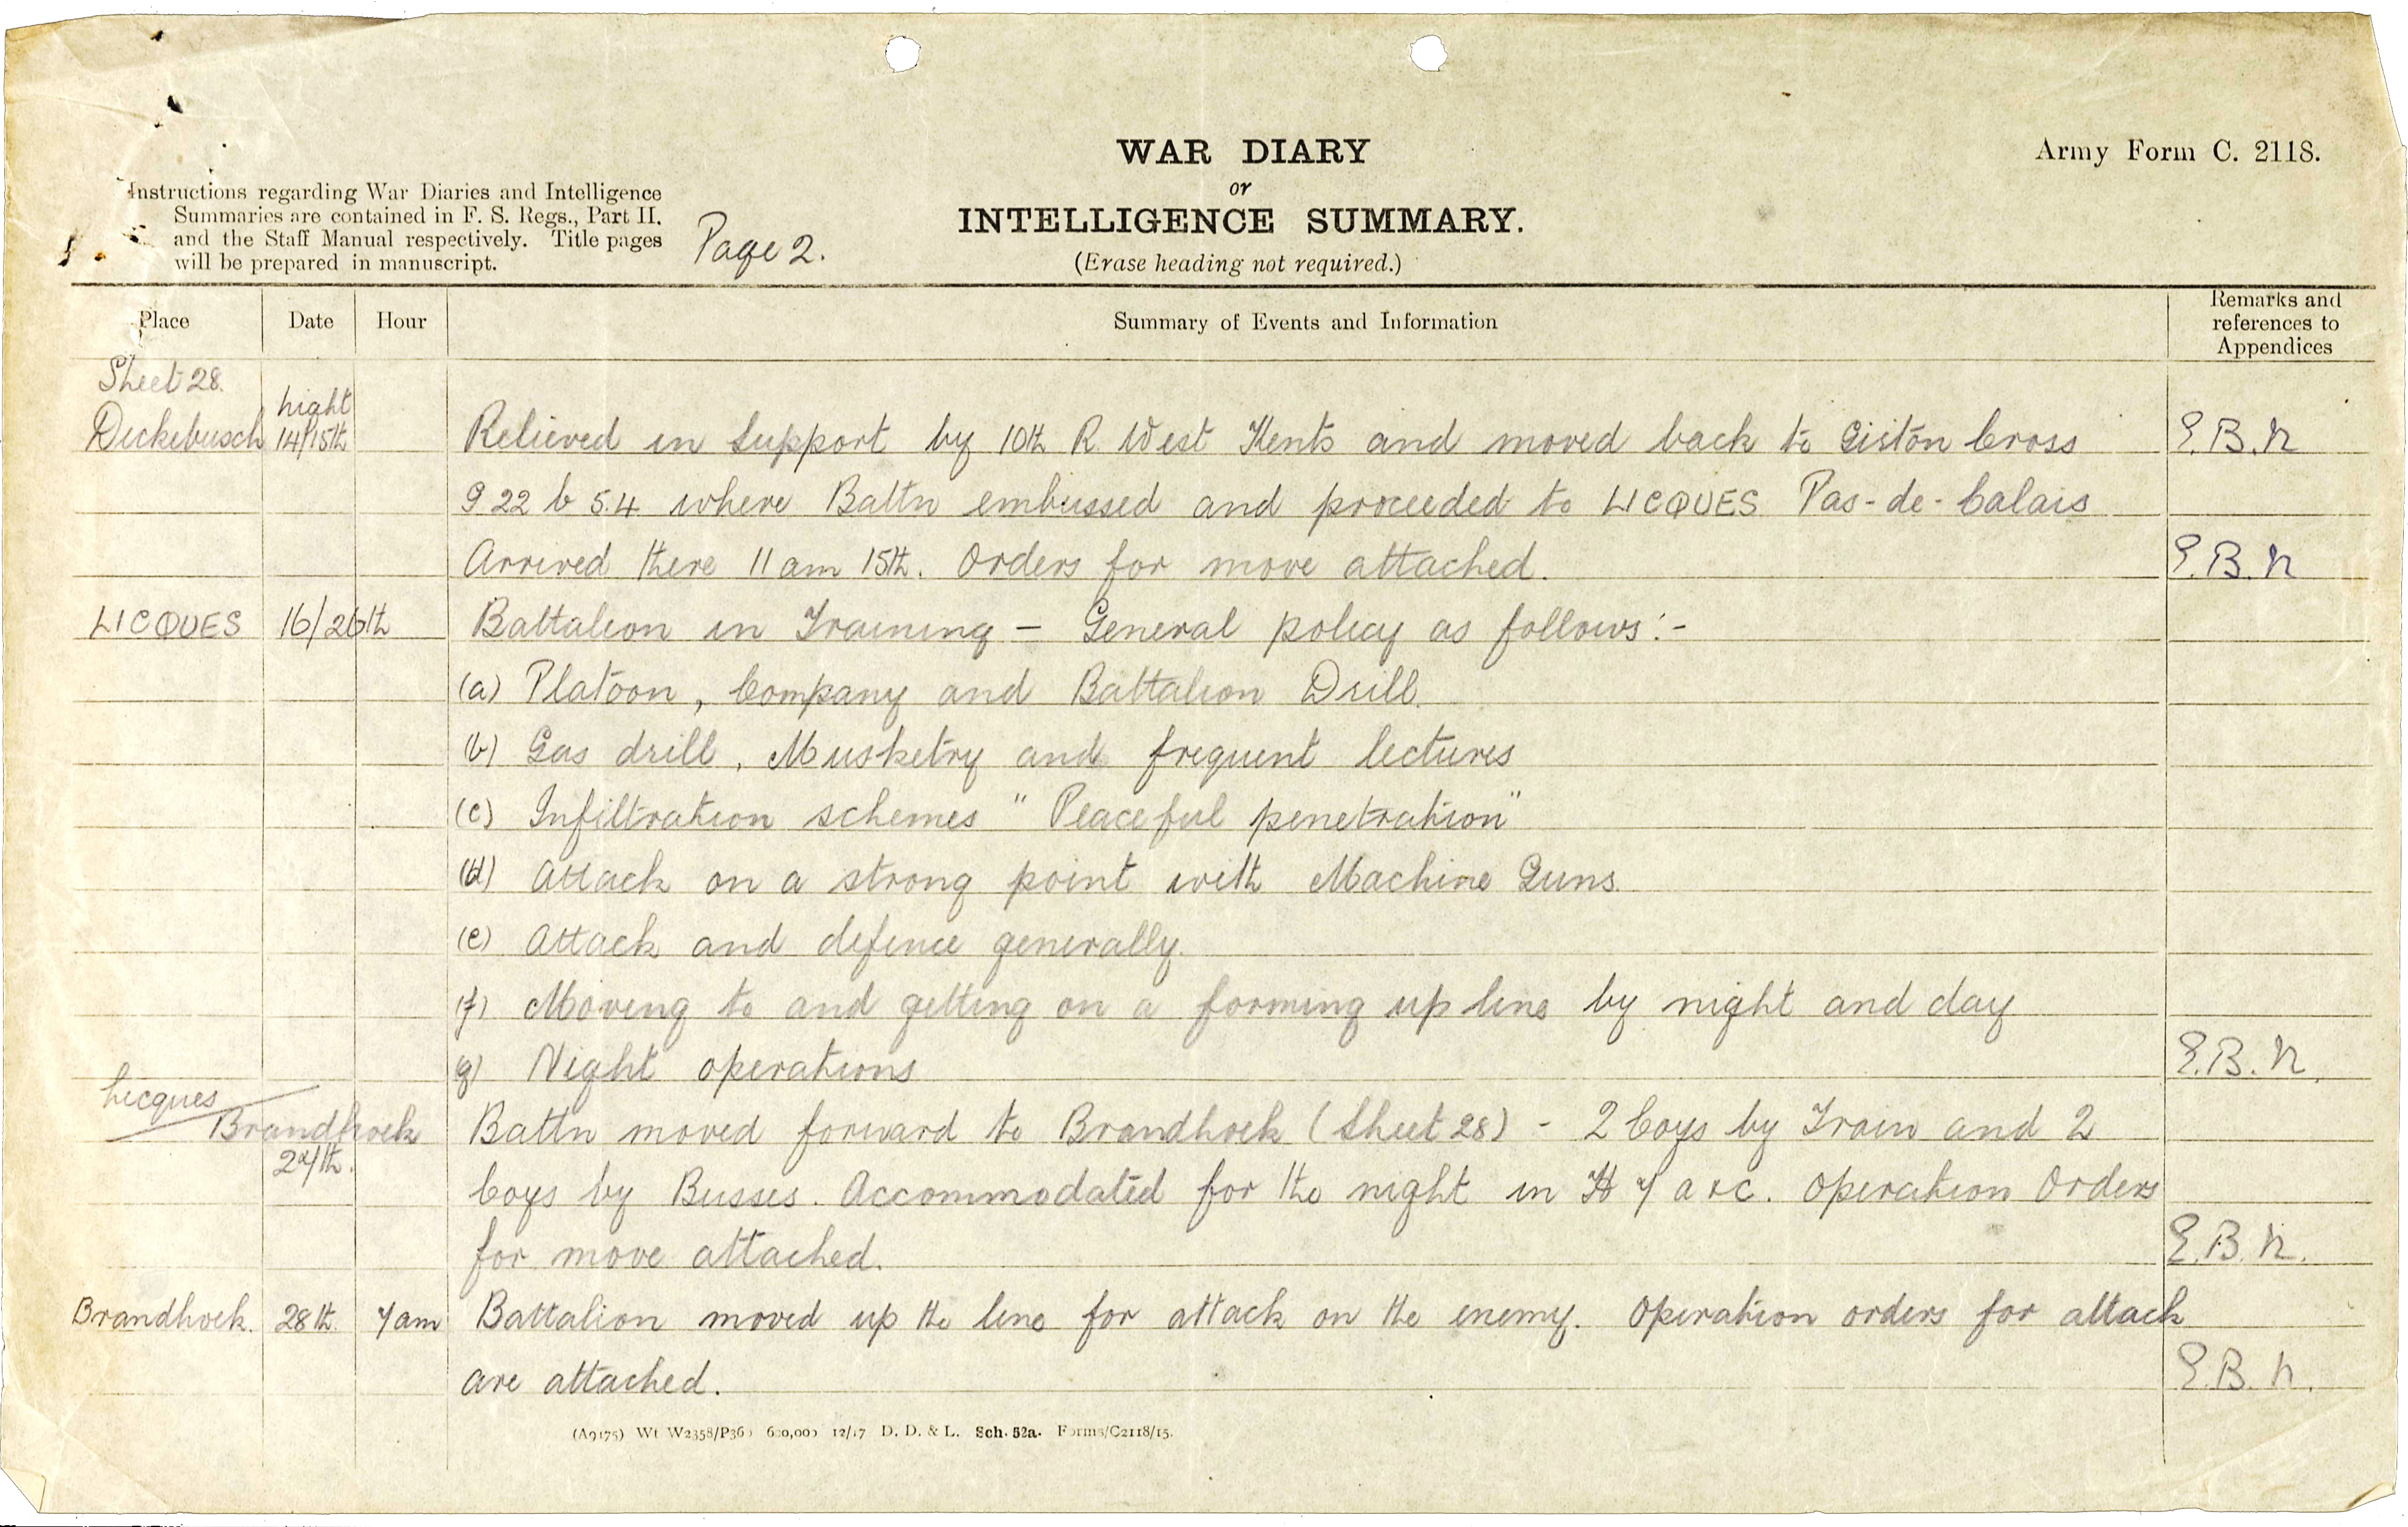 WAR DIARY
or
INTELLIGENCE SUMMARY.
(Erase heading not required.)
Army Form C. 2118.
Instructions regarding War Diaries and Intelligence
Summaries are contained in F. S. Regs., Part II.
and the Staff Manual respectively. Title pages
will be prepared in manuscript.
Page 2.
Place Date Hour Summary of Events and Information Remarks and references to Appendices
Sheet 28.
Dickebusch night 14/15th Relieved in Support by 10th R. West Kents and moved back to Siston Cross E.B.N
G 22 b 5.4 where Battn embussed and proceeded to LICQUES Pas-de-Calais
Arrived there 11 am 15th. Orders for move attached. E.B.N
LICQUES 16/26th Battalion in Training – General policy as follows:-
(a) Platoon, Company and Battalion Drill.
(b) Gas drill, Musketry and frequent lectures
(c) Infiltration schemes "Peaceful penetration"
(d) Attack on a strong point with Machine Guns.
(e) Attack and defence generally.
(f) Moving to and getting on a forming up line by night and day
(g) Night operations E.B.N.
Licques
Brandhoek 27th. Battn moved forward to Brandhoek (Sheet 28) - 2 Coys by Train and 2
Coys by Busses. Accommodated for the night in H 7 a & c. Operation Orders
for move attached. E.B.N.
Brandhoek. 28th. 7 am Battalion moved up the line for attack on the enemy. Operation orders for attack
are attached. E.B.N.
(A9175) Wt W2358/P360 600,000 12/17 D. D. & L. Sch. 52a. Forms/C2118/15.